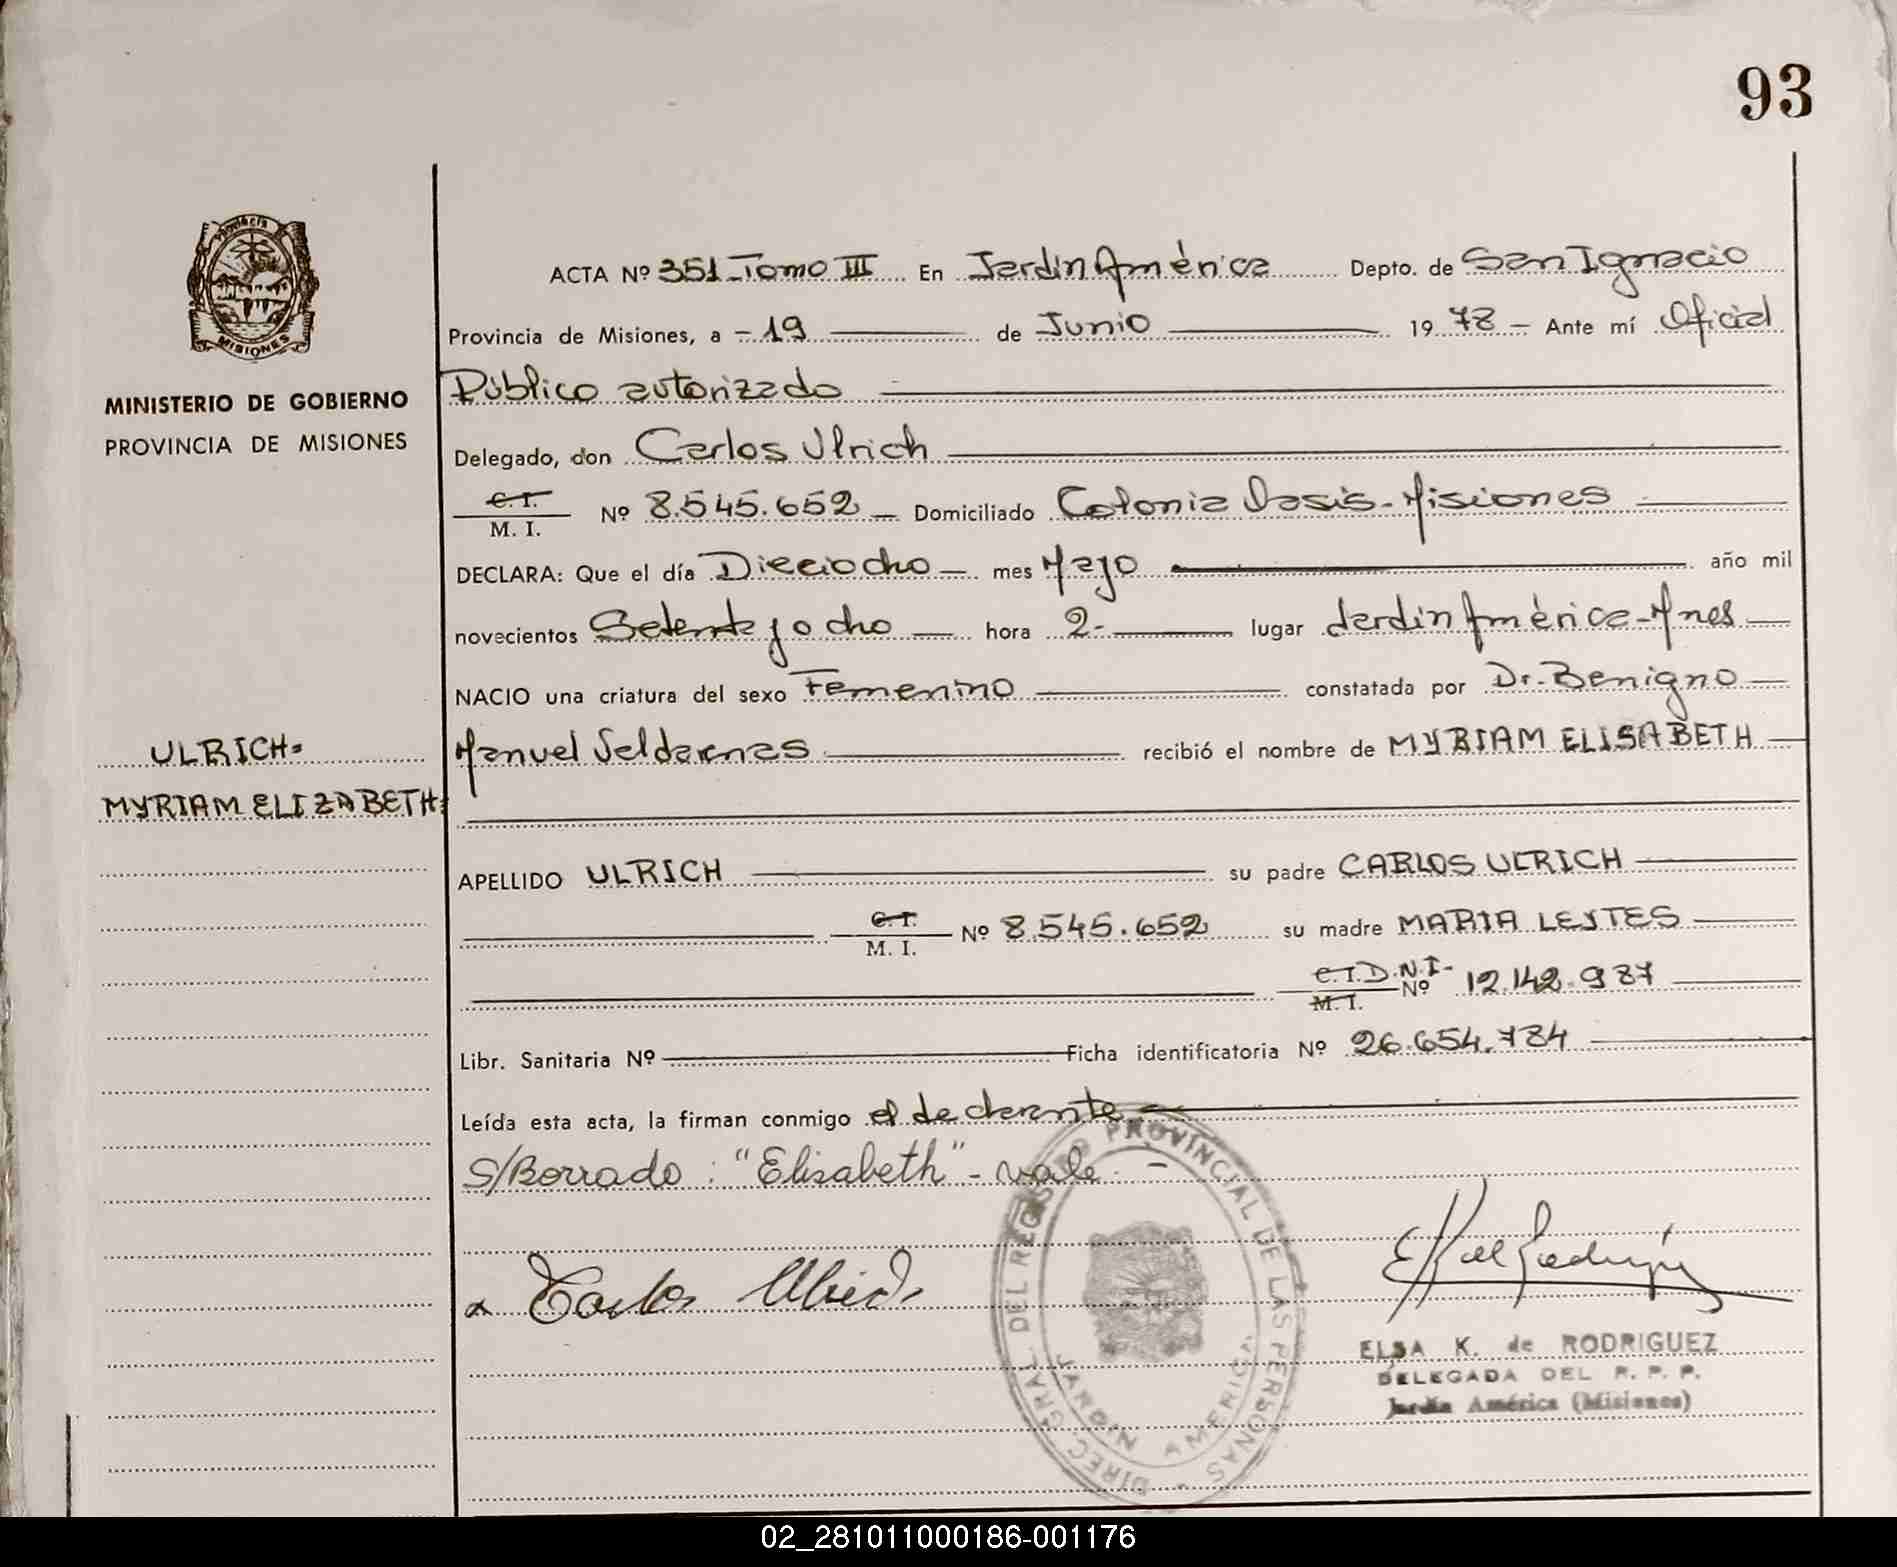 93
Provincia
MISIONES
MINISTERIO DE GOBIERNO
PROVINCIA DE MISIONES
ACTA Nº 351-Tomo III En Jardin América Depto. de San Ignacio
Provincia de Misiones, a -19 de Junio 1978- Ante mí Oficial
Público autorizado
Delegado, don Carlos Ulrich
C.I.
M. I. Nº 8.545.652- Domiciliado Colonia Oasis-Misiones
DECLARA: Que el día Dieciocho- mes Mayo año mil
novecientos Setenta y ocho hora 2- lugar Jardin América-Mnes
NACIO una criatura del sexo Femenino constatada por Dr. Benigno
Manuel recibió el nombre de MYRIAM ELISABETH
ULRICH=
MYRIAM ELIZABETH=
APELLIDO ULRICH su padre CARLOS ULRICH
C.I.
M. I. Nº 8.545.652 su madre MARIA LEYTES
C.I. D.N.I-
M. I. Nº 12.142.987
Libr. Sanitaria Nº Ficha identificatoria Nº 26.654.784
Leída esta acta, la firman conmigo el declarante
S/Borrado: "Elisabeth"- vale.-
x Carlos Ulrich
DIREC. GRAL. DEL REGISTRO PROVINCIAL DE LAS PERSONAS
JARDIN AMERICA
ELSA K. de RODRIGUEZ
DELEGADA DEL R. P. P.
Jardín América (Misiones)
02_281011000186-001176